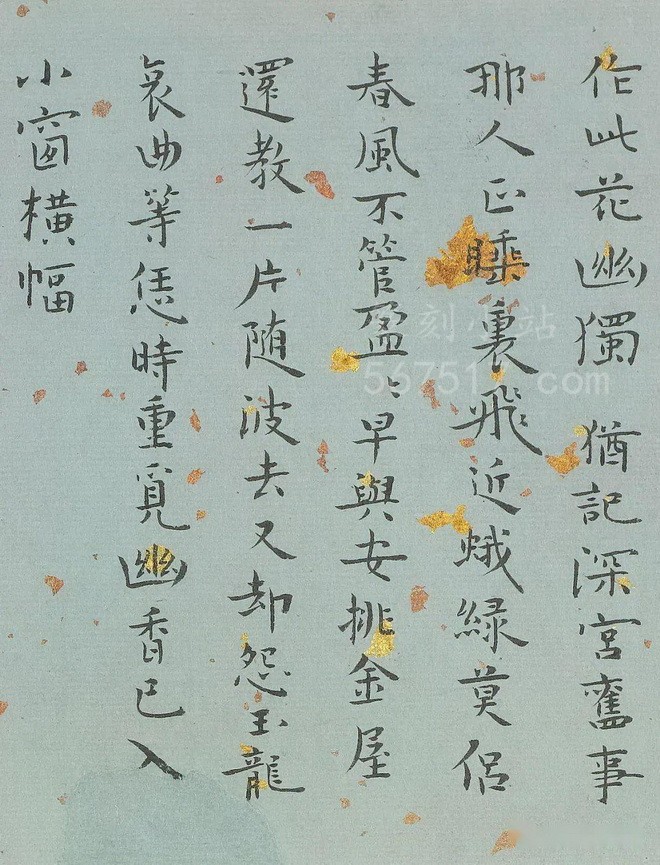 作此花幽獨 猶記深宮舊事
那人正睡裏飛近蛾緑莫佀
春風不管盈〻早與安排金屋
還教一片随波去又却怨玉龍
哀曲等恁時重覓幽香已入
小窗橫幅
刻小站